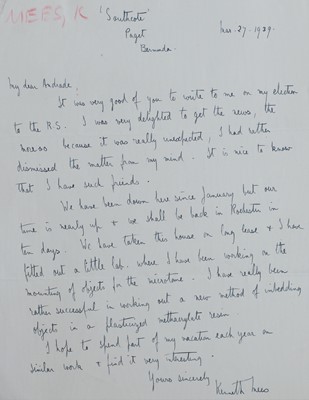 MEES, K
'Southcote'
Paget
Bermuda.
Mar. 27. 1939.
My dear Andrade,
It was very good of you to write to me on my election
to the R.S. I was very delighted to get the news, the
more so because it was really unexpected, I had rather
dismissed the matter from my mind. It is nice to know
that I have such friends.
We have been down here since January but our
time is nearly up & we shall be back in Rochester in
ten days. We have taken this house on long lease & I have
fitted out a little lab. where I have been working on the
mounting of objects for the microtome. I have really been
rather successful in working out a new method of imbedding
objects in a plasticized methacrylate resin
I hope to spend part of my vacation each year on
similar work & find it very interesting.
Yours sincerely
Kenneth Mees